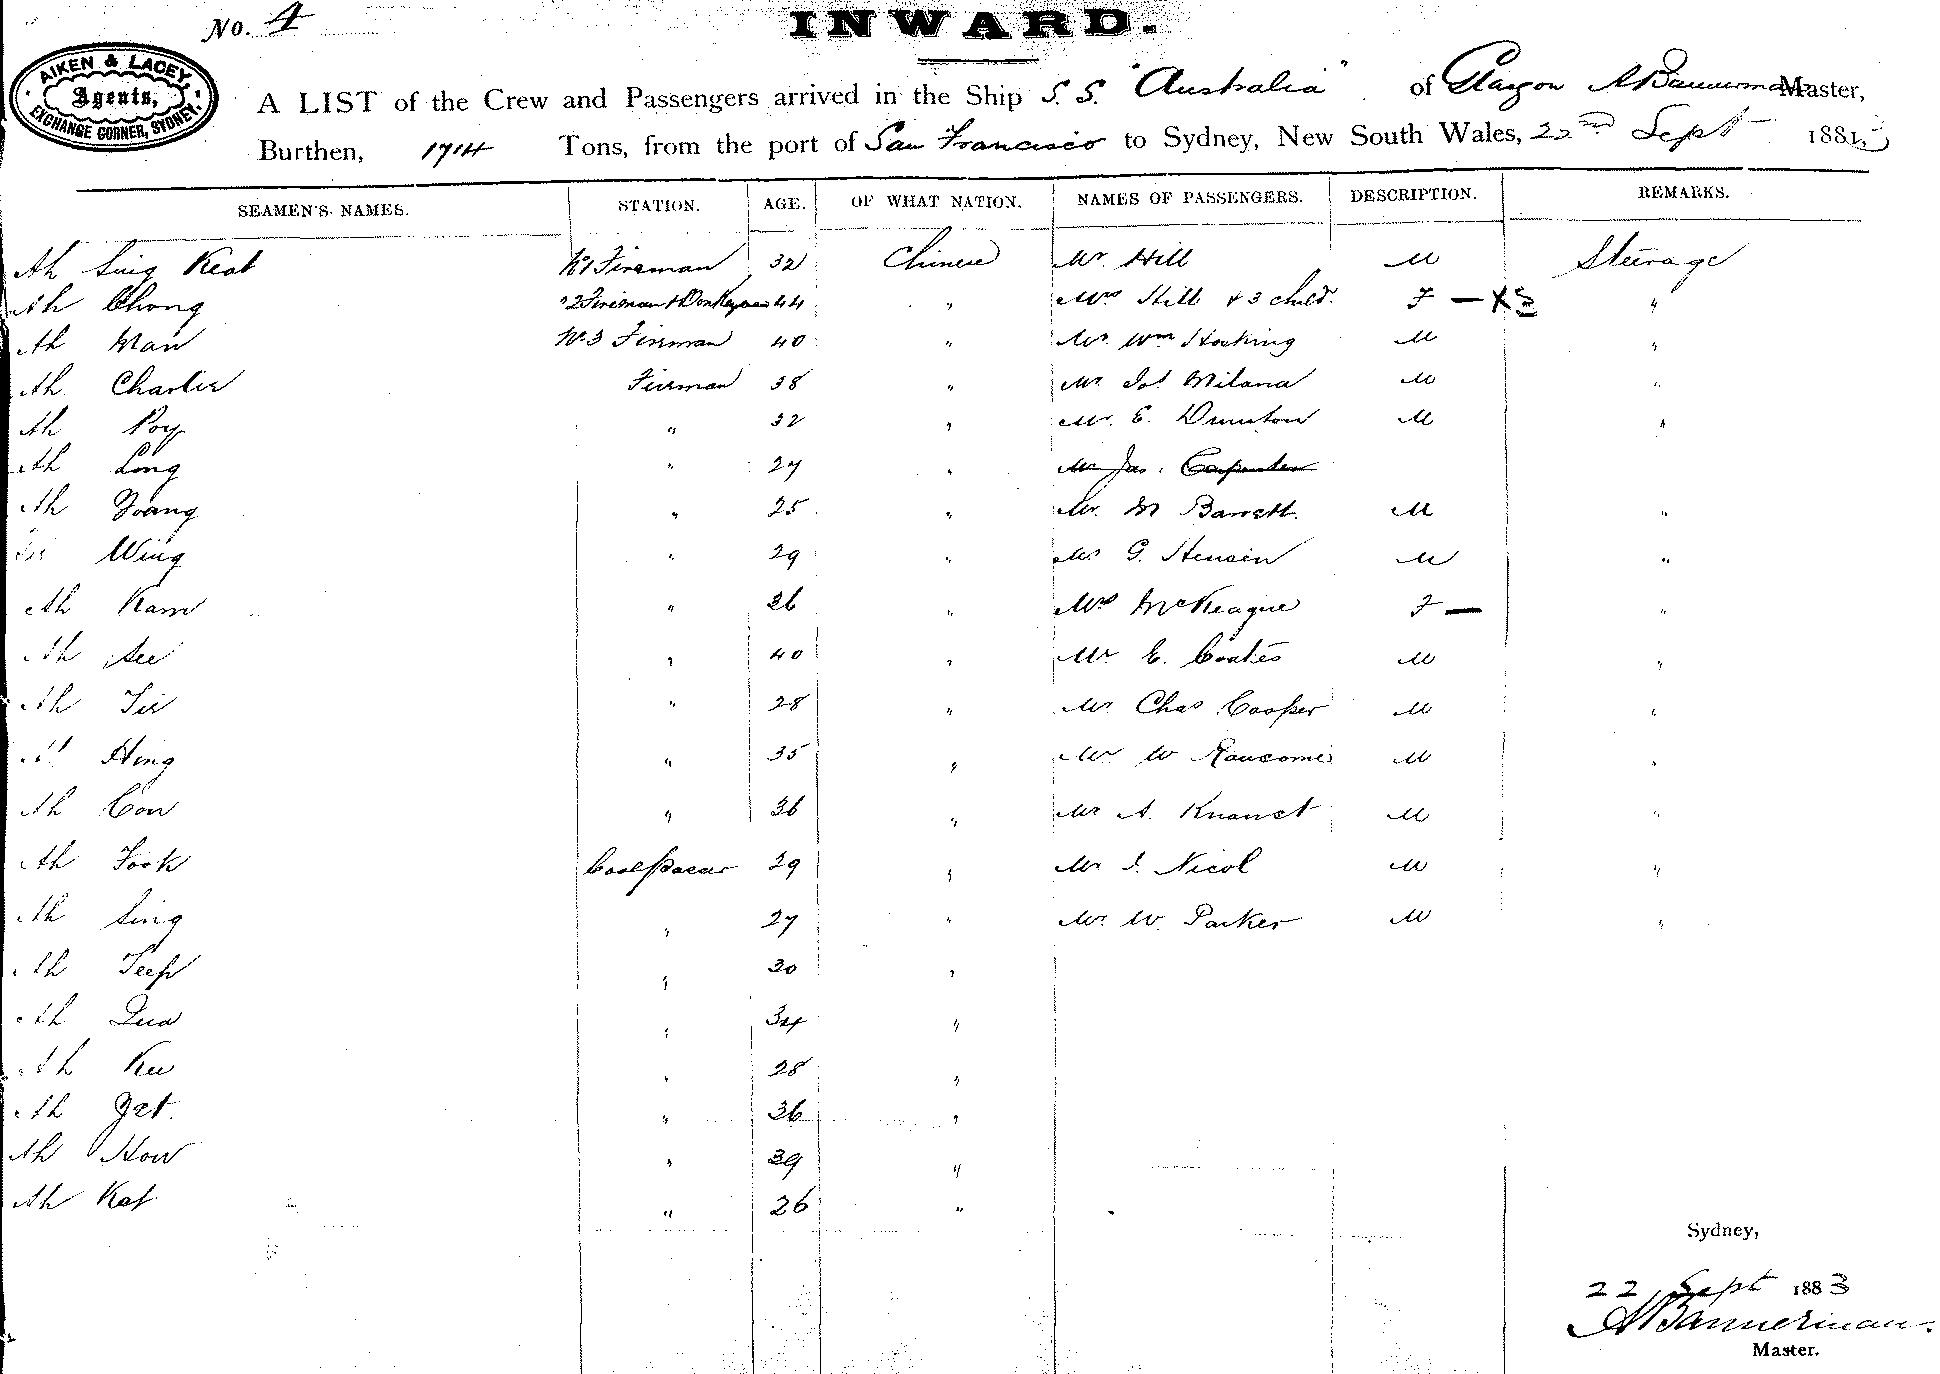 No. 4
INWARD.
AIKEN & LACEY,
Agents,
EXCHANGE CORNER, SYDNEY.
A LIST of the Crew and Passengers arrived in the Ship S.S. "Australia" of Glasgow A Bannerman Master,
Burthen, 1714 Tons, from the port of San Francisco to Sydney, New South Wales, 22nd Sept 1883
SEAMEN'S NAMES. STATION. AGE. OF WHAT NATION. NAMES OF PASSENGERS. DESCRIPTION. REMARKS.
Ah Sing Keat No 1 Fireman 32 Chinese Mr. Hill M Steerage
Ah Chong " 2 Fireman & Donkeyman 44 " Mrs Hill & 3 child. F — X 3 "
Ah Man No. 3 Fireman 40 " Mr. Wm Hocking M "
Ah Charlie Fireman 38 " Mr. Jos Milana M "
Ah Poy " 32 " Mr. E. Dunston M "
Ah Long " 27 " Mr Jas. Carpenter
Ah Yoang " 25 " Mr. M Barrett. M "
Wing " 29 " Mr G. Hensen M "
Ah Kam " 26 " Mrs McKeague F — "
Ah See " 40 " Mr E. Coates M "
Ah Sir " 28 " Mr Chas Cooper M "
Ah Hing " 35 " Mr W Ransome M "
Ah Con " 36 " Mr A. M "
Ah Fook Coalpasser 29 " Mr J. Nicol M "
Ah Sing " 27 " Mr. W. Parker M "
Ah Teep " 30 "
Ah Qua " 34 "
Ah Kee " 28 "
Ah Yet. " 36 "
Ah How " 39 "
Ah Kat " 26 "
Sydney,
22 Sept 1883
A Bannerman.
Master.